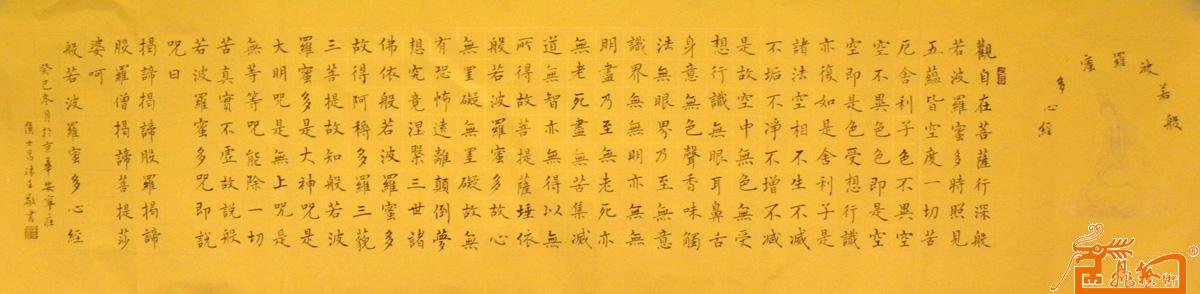 般若波羅蜜
多心經
觀自在菩薩行深般
若波羅蜜多時照見
五蘊皆空度一切苦
厄舍利子色不異空
空不異色色即是空
空即是色受想行識
亦復如是舍利子是
諸法空相不生不滅
不垢不淨不增不減
是故空中無色無受
想行識無眼耳鼻舌
身意無色聲香味觸
法無眼界乃至無意
識界無無明亦無無
明盡乃至無老死亦
無老死盡無苦集滅
道無智亦無得以無
所得故菩提薩埵依
般若波羅蜜多故心
無罣礙無罣礙故無
有恐怖遠離顛倒夢
想究竟涅槃三世諸
佛依般若波羅蜜多
故得阿耨多羅三藐
三菩提故知般若波
羅蜜多是大神咒是
大明咒是無上咒是
無等等咒能除一切
苦真實不虛故說般
若波羅蜜多咒即說
咒曰
揭諦揭諦般羅揭諦
般羅僧揭諦菩提莎
婆呵
般若波羅蜜多心經
癸巳冬月於京華安寧莊
侯士昌沐手敬書